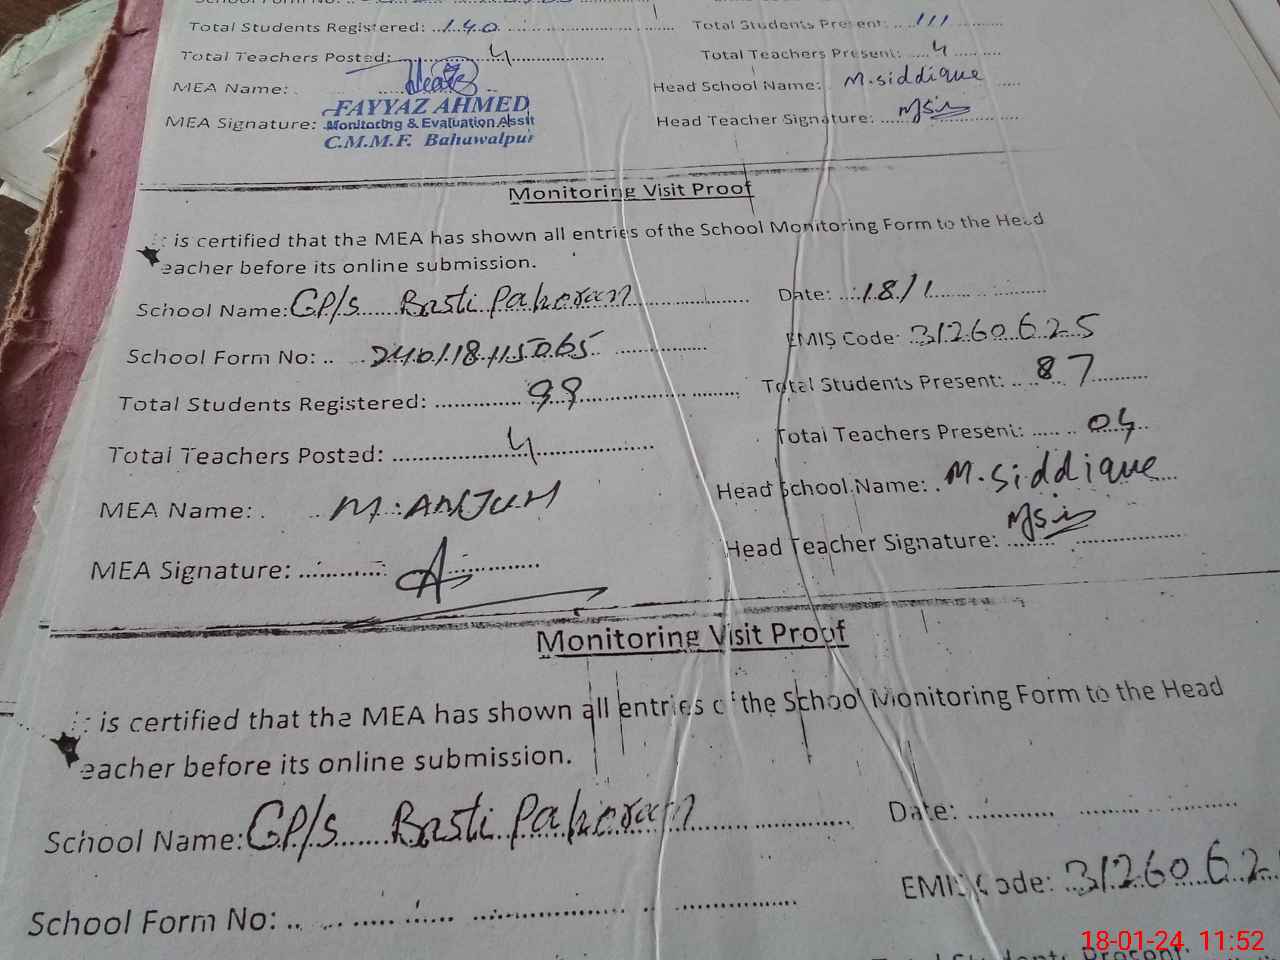 Total Students Registered: 140 Total Students Present: 111
Total Teachers Posted: 4 Total Teachers Present: 4
MEA Name: Head School Name: M.siddique
FAYYAZ AHMED
MEA Signature: Monitoring & Evaluation Asstt Head Teacher Signature:
C.M.M.F. Bahawalpur
Monitoring Visit Proof
is certified that the MEA has shown all entries of the School Monitoring Form to the Head
eacher before its online submission.
School Name: GP/s Basti Pakoran Date: 18/1
School Form No: 240118115065 EMIS Code: 31260625
Total Students Registered: 99 Total Students Present: 87
Total Teachers Posted: 4 Total Teachers Present: 04
MEA Name: M.ANJUM Head School Name: M.Siddique
MEA Signature: Head Teacher Signature:
Monitoring Visit Proof
is certified that the MEA has shown all entries of the School Monitoring Form to the Head
eacher before its online submission.
School Name: GP/s Basti Pakoran Date:
School Form No: EMIS Code: 3126062
Total Students Present:
18-01-24 11:52